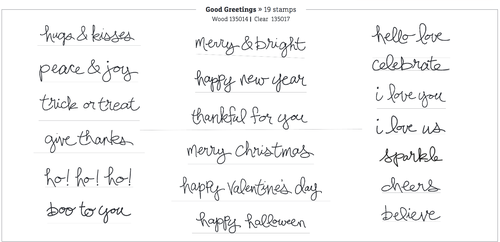 Good Greetings » 19 stamps
Wood 135014 | Clear 135017
hugs & kisses
peace & joy
trick or treat
give thanks
ho! ho! ho!
boo to you
merry & bright
happy new year
thankful for you
merry christmas
happy valentine's day
happy halloween
hello love
celebrate
i love you
i love us
sparkle
cheers
believe